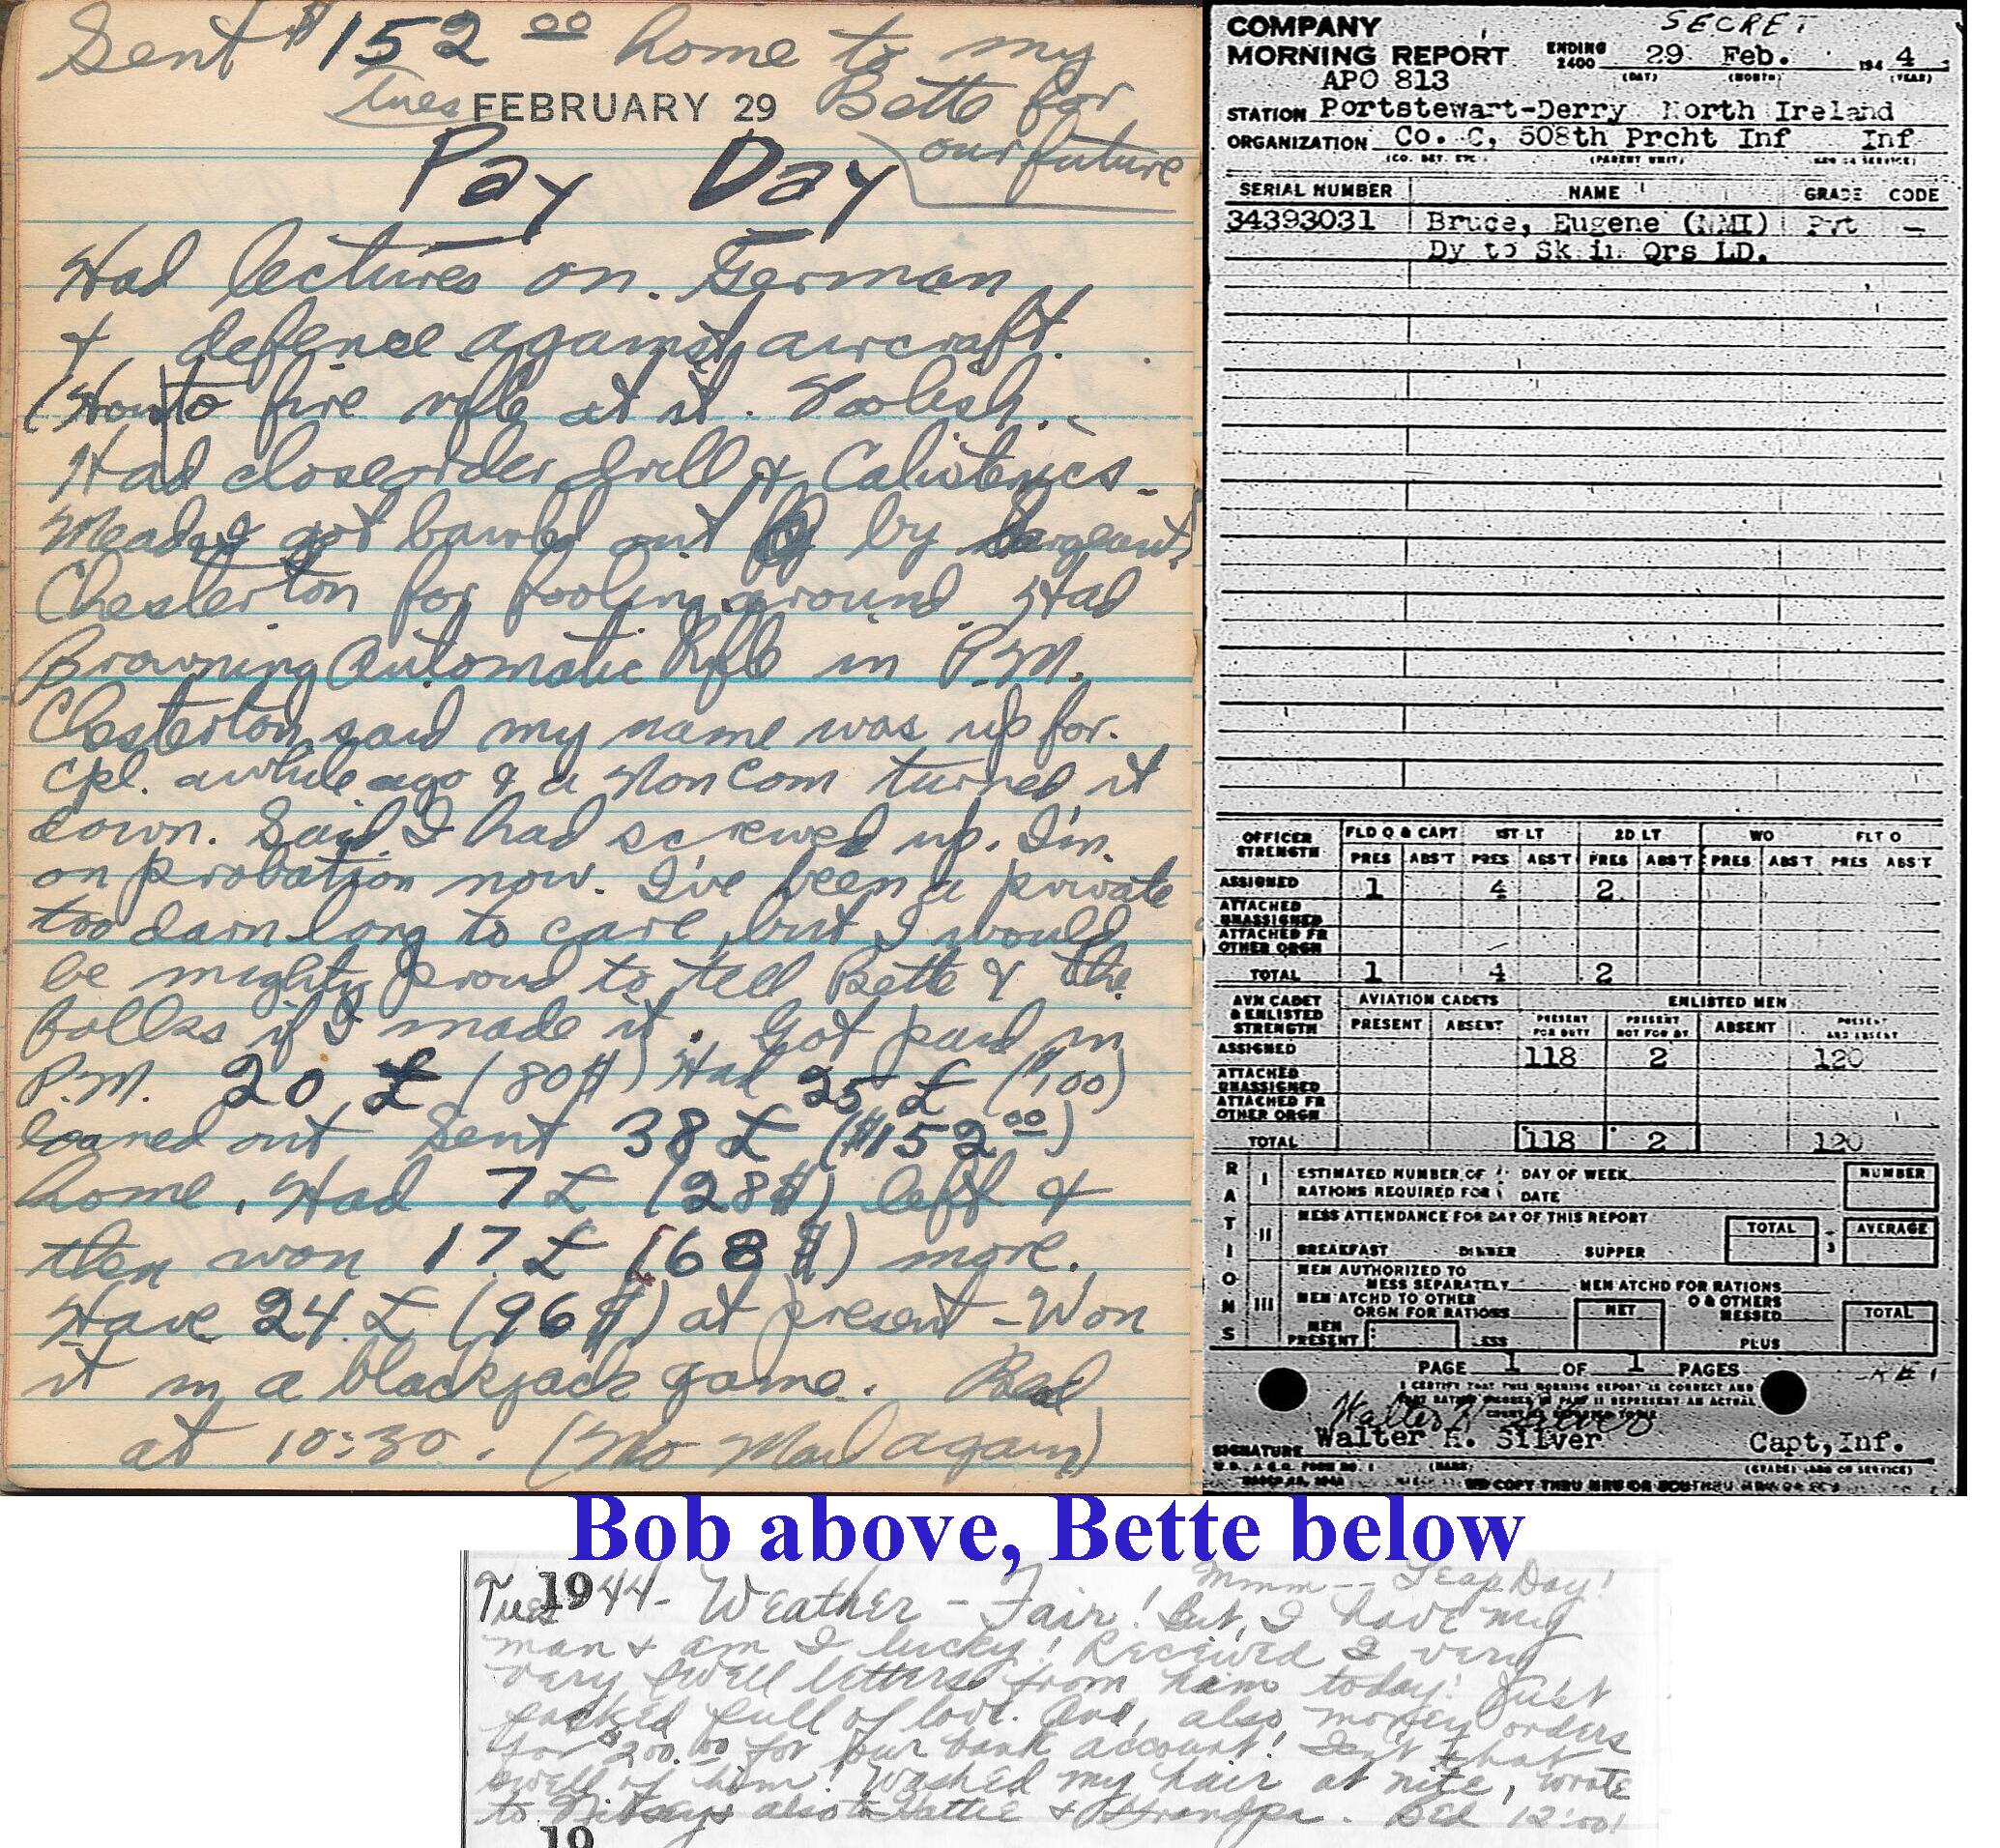 Sent $152 00 home to my
Tues FEBRUARY 29 Bette for
our future
Pay Day
Had lectures on German
+ defence against aircraft.
(How to fire rifle at it. Foolish.
Had closeorder drill & Calistenics -
Mead & I got bawled out by Sergeant
Chesterton for fooling around. Had
Browning Automatic Rifle in P.M.
Chesterton said my name was up for
Cpl. awhile ago & a Non Com turned it
down. Said I had screwed up. I'm
on probation now. I've been a private
too darn long to care, but I would
be mighty proud to tell Bette & the
folks if I made it. Got paid in
P.M. 20 £ (80$) Had 25 £ ($100)
loaned out Sent 38 £ ($152 00)
home. Had 7 £ (28$) left &
then won 17 £ (68$) more.
Have 24 £ (96$) at present - Won
it in a blackjack game. Bed
at 10:30. (No Mail again)
COMPANY SECRET
MORNING REPORT ENDING 2400 29 Feb. 1944
(DAY) (MONTH) (YEAR)
APO 813
STATION Portstewart-Derry North Ireland
ORGANIZATION Co. C, 508th Prcht Inf Inf
(CO. DET. ETC.) (PARENT UNIT) (ARM OR SERVICE)
SERIAL NUMBER NAME GRADE CODE
34393031 Bruce, Eugene (NMI) Pvt -
Dy to Sk in Qrs LD.
OFFICER STRENGTH FLD O & CAPT 1ST LT 2D LT WO FLT O
PRES ABS'T PRES ABS'T PRES ABS'T PRES ABS'T PRES ABS'T
ASSIGNED 1 4 2
ATTACHED UNASSIGNED
ATTACHED FR OTHER ORGN
TOTAL 1 4 2
AVN CADET & ENLISTED STRENGTH AVIATION CADETS ENLISTED MEN
PRESENT ABSENT PRESENT FOR DUTY PRESENT NOT FOR DY ABSENT PRESENT AND ABSENT
ASSIGNED 118 2 120
ATTACHED UNASSIGNED
ATTACHED FR OTHER ORGN
TOTAL 118 2 120
RATIONS
I ESTIMATED NUMBER OF DAY OF WEEK NUMBER
RATIONS REQUIRED FOR DATE
II MESS ATTENDANCE FOR DAY OF THIS REPORT TOTAL AVERAGE
BREAKFAST DINNER SUPPER 3
III MEN AUTHORIZED TO MESS SEPARATELY MEN ATCHD FOR RATIONS
MEN ATCHD TO OTHER ORGN FOR RATIONS NET O & OTHERS MESSED TOTAL
MEN PRESENT LESS PLUS
PAGE 1 OF 1 PAGES
I CERTIFY THAT THIS MORNING REPORT IS CORRECT AND
THAT RATION FIGURES IN PART II REPRESENT AN ACTUAL
Walter H. Silver
SIGNATURE Walter H. Silver Capt, Inf.
(NAME) (GRADE) (ARM OR SERVICE)
Bob above, Bette below
Mmm -- Leap Day!
Tues 1944 - Weather - Fair! But, I have my
man & am I lucky! Received 2 very
very swell letters from him today! Just
packed full of love. And, also, money orders
for $200.00 for our bank account! Isn't that
swell of him! Washed my hair at nite, wrote
to also to Hattie & Grandpa. Bed 12:00!
19